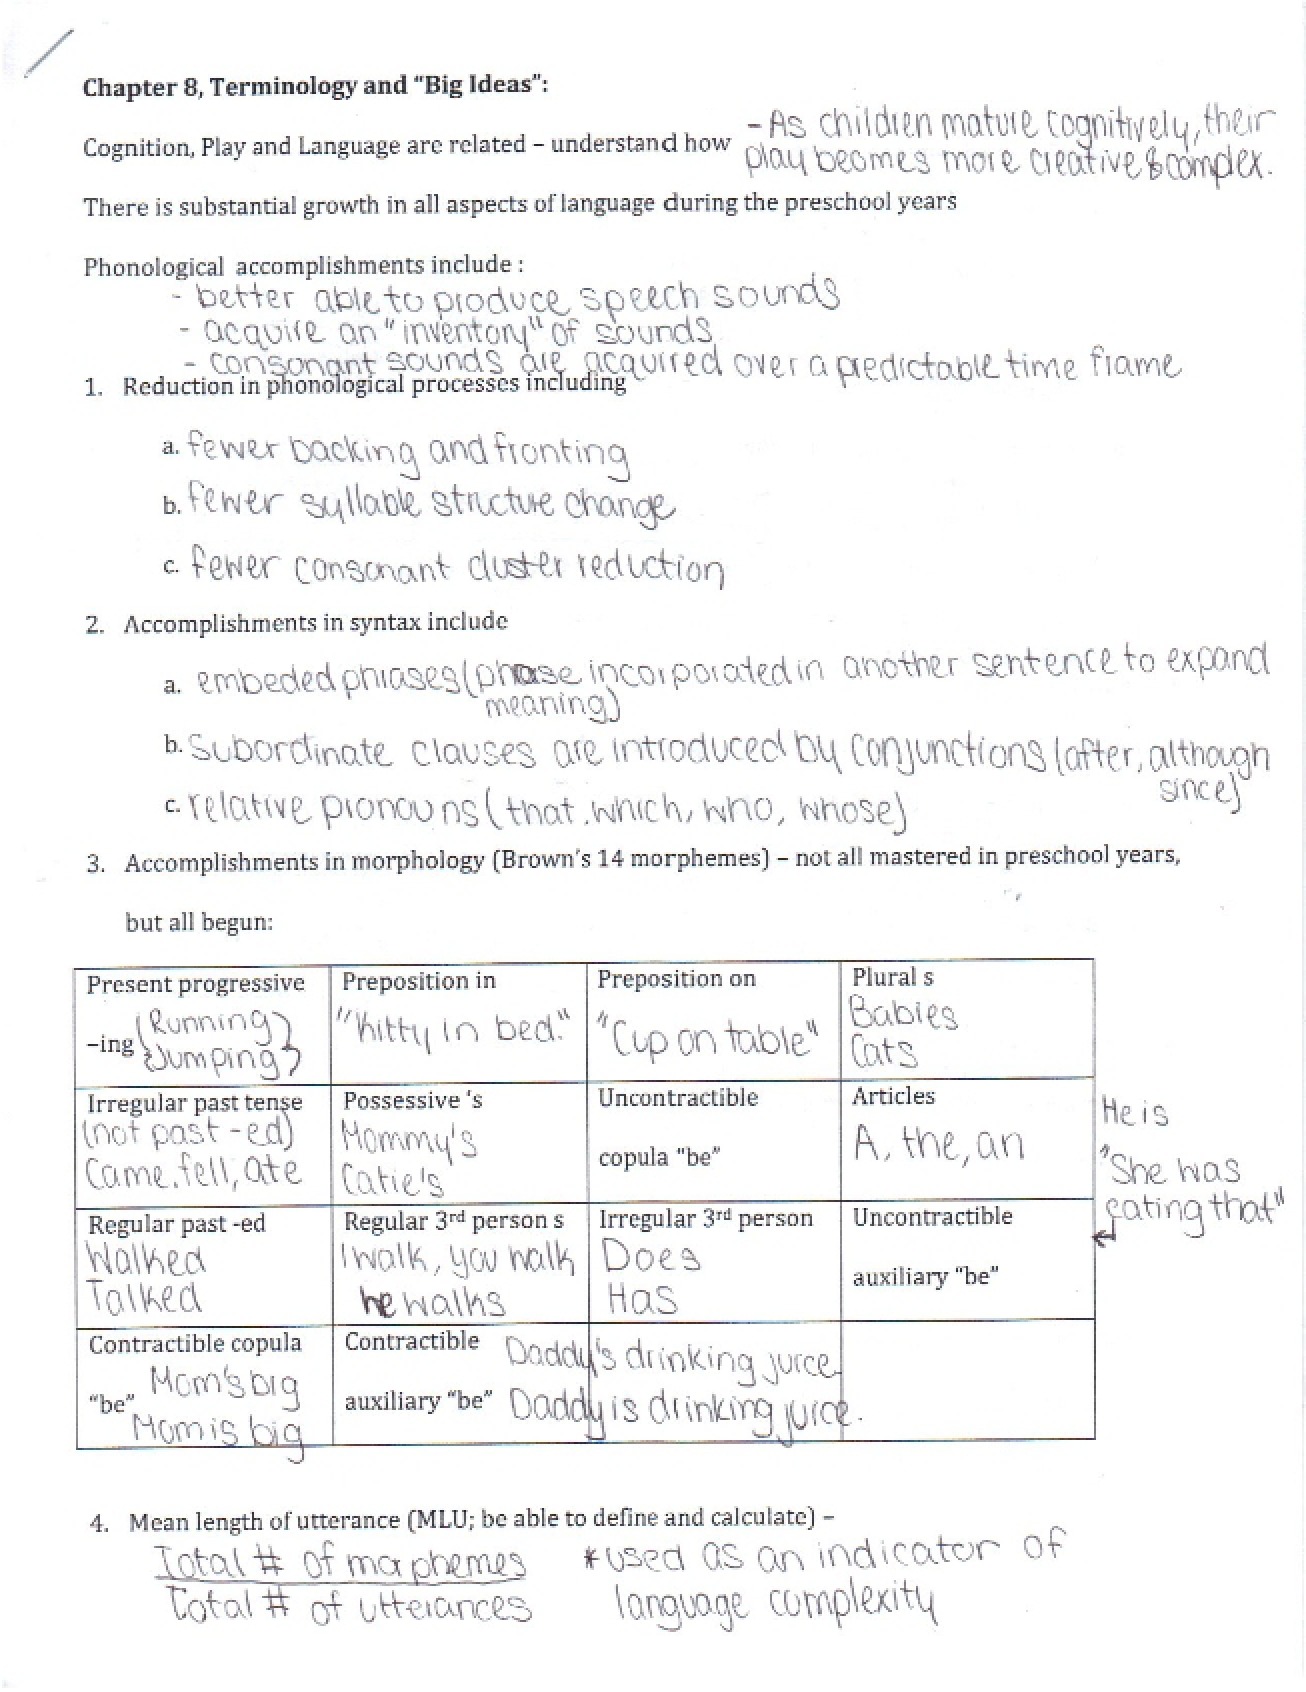 Chapter 8, Terminology and "Big Ideas":
Cognition, Play and Language are related – understand how - As children mature cognitively, their
play becomes more creative & complex.
There is substantial growth in all aspects of language during the preschool years
Phonological accomplishments include :
- better able to produce speech sounds
- acquire an "inventory" of sounds
- consonant sounds are acquired over a predictable time frame
1. Reduction in phonological processes including
a. fewer backing and fronting
b. fewer syllable structure change
c. fewer consonant cluster reduction
2. Accomplishments in syntax include
a. embeded phrases (phrase incorporated in another sentence to expand
meaning)
b. Subordinate clauses are introduced by conjunctions (after, although
since)
c. relative pronouns (that, which, who, whose)
3. Accomplishments in morphology (Brown's 14 morphemes) – not all mastered in preschool years,
but all begun:
Present progressive
–ing (Running)
Jumping
Preposition in
"Kitty in bed."
Preposition on
"Cup on table"
Plural s
Babies
Cats
Irregular past tense
(not past -ed)
Came, fell, ate
Possessive 's
Mommy's
Catie's
Uncontractible
copula "be"
Articles
A, the, an
He is
"She was
eating that"
Regular past -ed
Walked
Talked
Regular 3rd person s
I walk, you walk
he walks
Irregular 3rd person
Does
Has
Uncontractible
auxiliary "be"
Contractible copula
"be" Mom's big
Mom is big
Contractible Daddy's drinking juice
auxiliary "be" Daddy is drinking juice.
4. Mean length of utterance (MLU; be able to define and calculate) –
Total # of morphemes *used as an indicator of
Total # of utterances language complexity